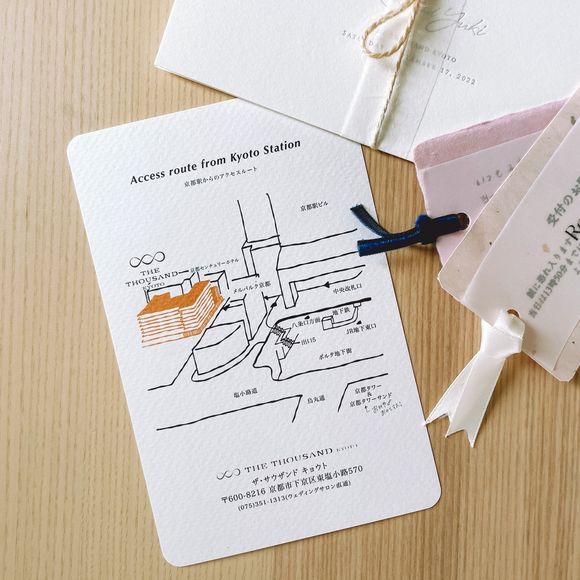 Yuki
SATURDAY
AND KYOTO
17, 2022
Access route from Kyoto Station
京都駅からのアクセスルート
京都駅ビル
THE
THOUSAND
KYOTO
京都センチュリーホテル
メルパルク京都
中央改札口
八条口方面
地下鉄
JR地下東口
出口5
ポルタ地下街
塩小路通
烏丸通
京都タワー
&
京都タワーサンド
THE THOUSAND KYOTO
ザ・サウザンド キョウト
〒600-8216 京都市下京区東塩小路570
(075)351-1313(ウェディングサロン直通)
受付のお
当日は13時20分まで